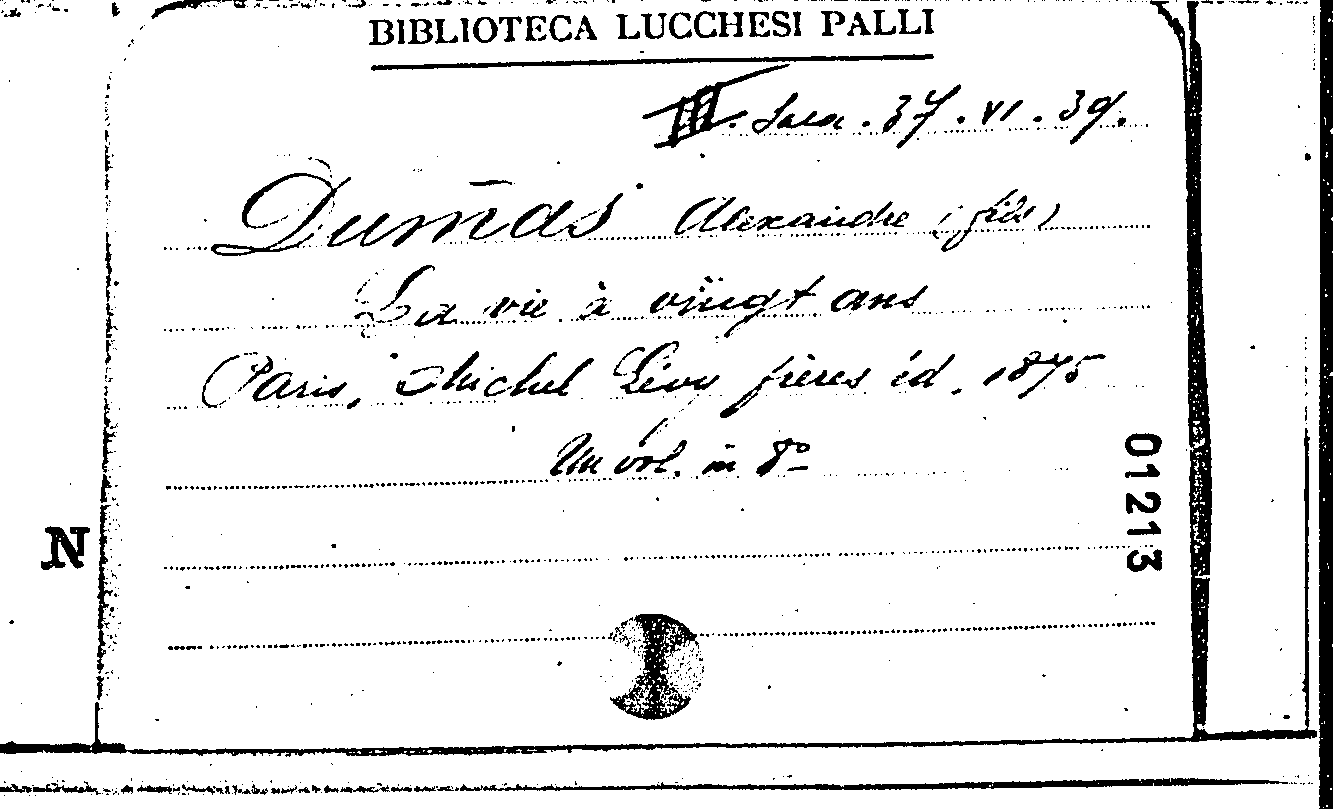 BIBLIOTECA LUCCHESI PALLI
III. Sala . 37 . VI . 39.
Dumas Alexandre (fils)
La vie à vingt ans
Paris, Michel Lévy frères éd. 1875
Un vol. in 8º
01213
N